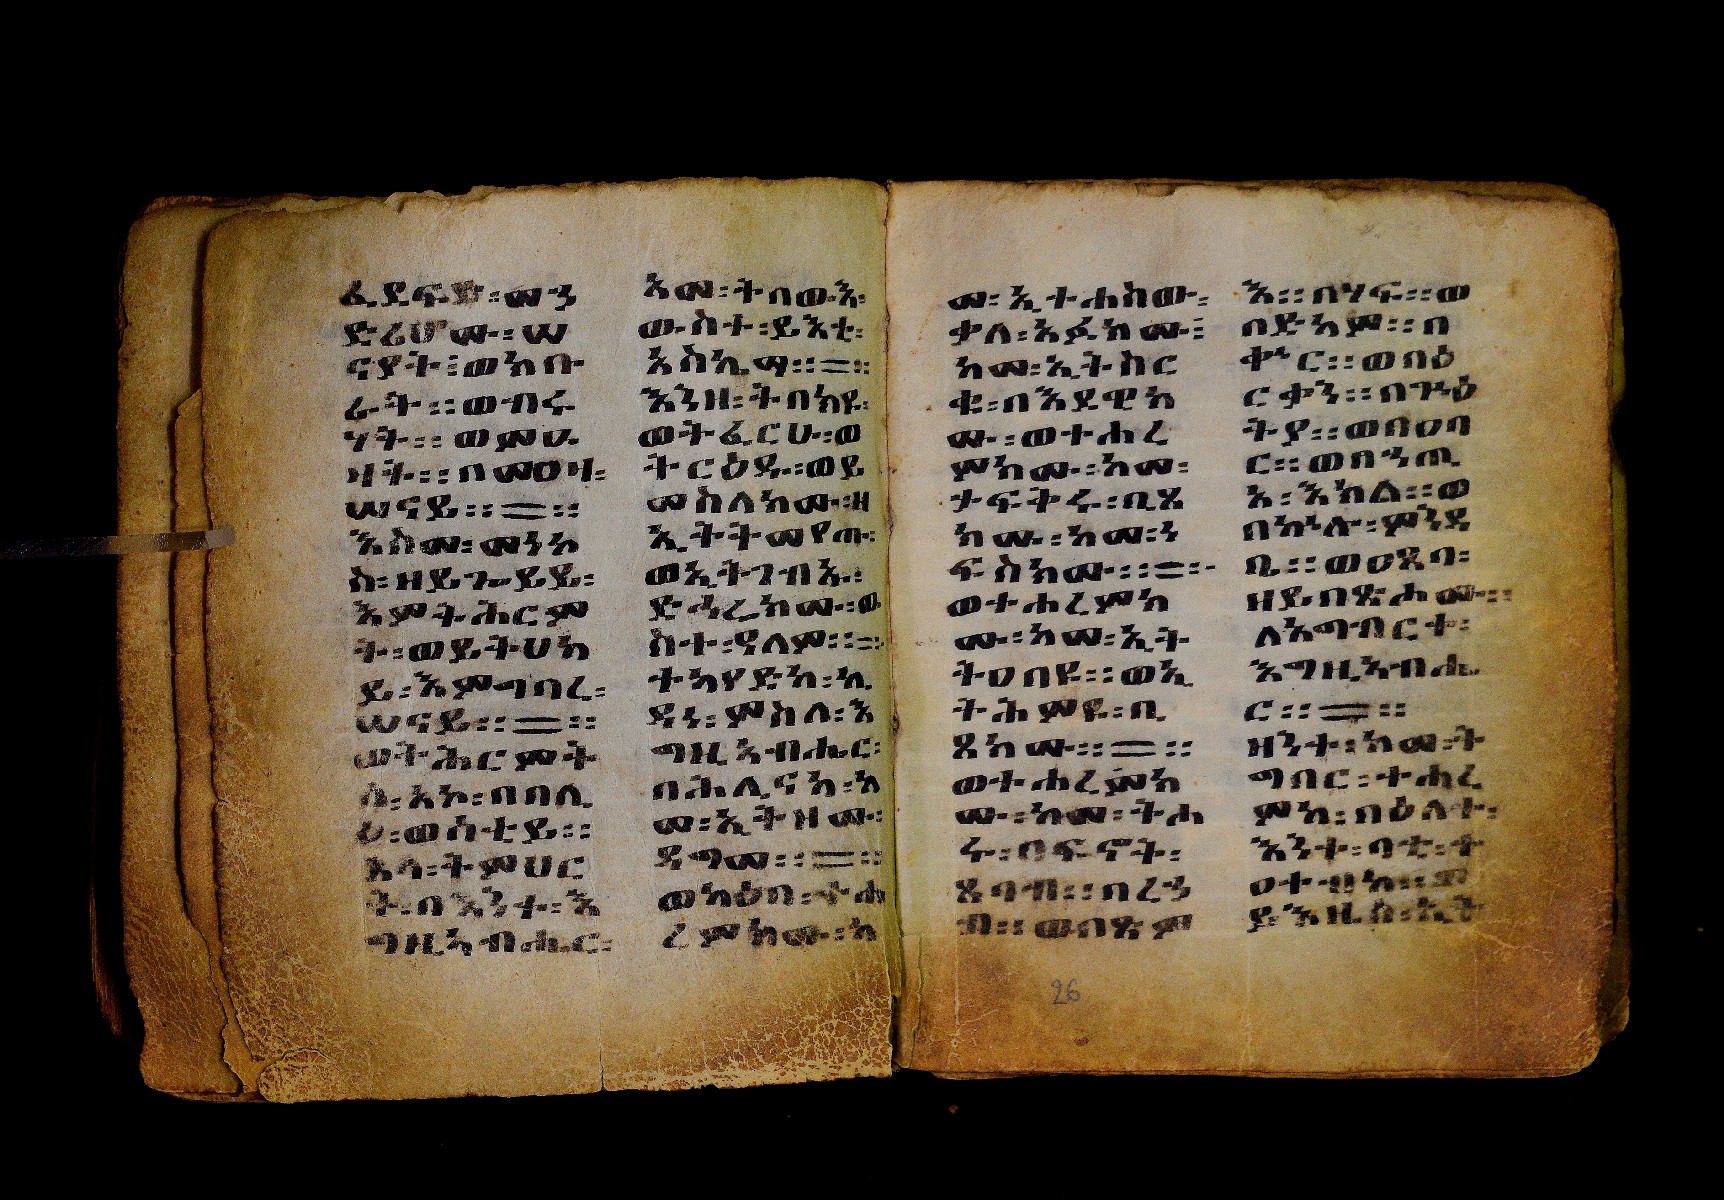 ፈያፍድ፡መን
ድሪሆሙ፡ሠ
ናያት፡ወከቡ
ራት፡፡ወብሩ
ሃት፡፡ወምዑ
ዛት፡፡በመዐዛ፡
ሠናይ፡፡=፡፡
እስመ፡መንክ
ስ፡ዘይጐይይ፡
እምትሕርም
ት፡ወይትሀከ
ይ፡እምግበረ፡
ሠናይ፡፡=፡፡
ወትሕርምት
ሰ፡አኮ፡በበሊ
ዕ፡ወሰቲይ፡፡
አላ፡ትምህር
ት፡በእንተ፡እ
ግዚአብሔር፡
አመ፡ትበውእ፡
ውስተ፡ይእቲ፡
አስኪማ፡፡=፡፡
እንዘ፡ትበከዪ፡
ወትፈርሁ፡ወ
ትርዕዱ፡ወይ
መስለክሙ፡ዘ
ኢትትመየጡ፡
ወኢትገብኡ፡
ድኅረክሙ፡ው
ስተ፡ዓለም፡፡=፡
ተአየድከ፡ኪ
ዳነ፡ምስለ፡እ
ግዚአብሔር፡
በሕሊናከ፡ከ
መ፡ኢትዘሙ፡
ዳግመ፡፡=፡፡
ወከዕበ፡ተሐ
ረምክሙ፡ከ
መ፡ኢተሐስው፡
ቃለ፡አፉክሙ፡
ከመ፡ኢትስር
ቁ፡በእደዊክ
ሙ፡ወተሐረ
ምክሙ፡ከመ፡
ታፍትሩ፡ቢጸ
ክሙ፡ከመ፡ነ
ፍስክሙ፡፡=፡፡
ወተሐረምክ
ሙ፡ከመ፡ኢት
ትዐበዩ፡፡ወኢ
ትሕምዩ፡ቢ
ጸክሙ፡፡=፡፡
ወተሐረምክ
ሙ፡ከመ፡ትሐ
ሩ፡በፍኖት፡
ጸባብ፡፡በረኃ
ብ፡፡ወበጽም
እ፡፡በሃፍ፡፡ወ
በድካም፡፡በ
ቍር፡፡ወበዕ
ርቃን፡፡በጕዕ
ትያ፡፡ወበዐባ
ር፡፡ወበኃጢ
አ፡እክል፡፡ወ
በኵሉ፡ምንዳ
ቤ፡፡ወዐጸባ፡
ዘይበጽሖሙ፡፡
ለአግብርተ፡
እግዚአብሔ
ር፡፡=፡፡
ዘንተ፡ከመ፡ት
ግበር፡ተሐረ
ምከ፡በዕለተ፡
እንተ፡ባቲ፡ተ
ዐተብከ፡፡መ
ያእዜሰ፡ኢት
26